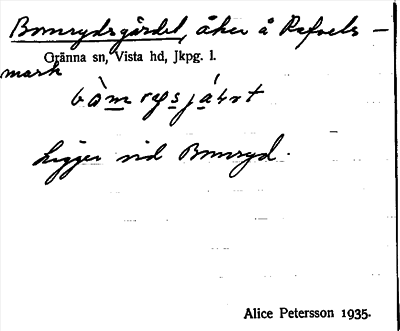 Bomrydsgärdet, åker å Refvels-
Gränna sn, Vista hd, Jkpg. l.
mark
Ligger vid Bomryd.
Alice Petersson 1935.